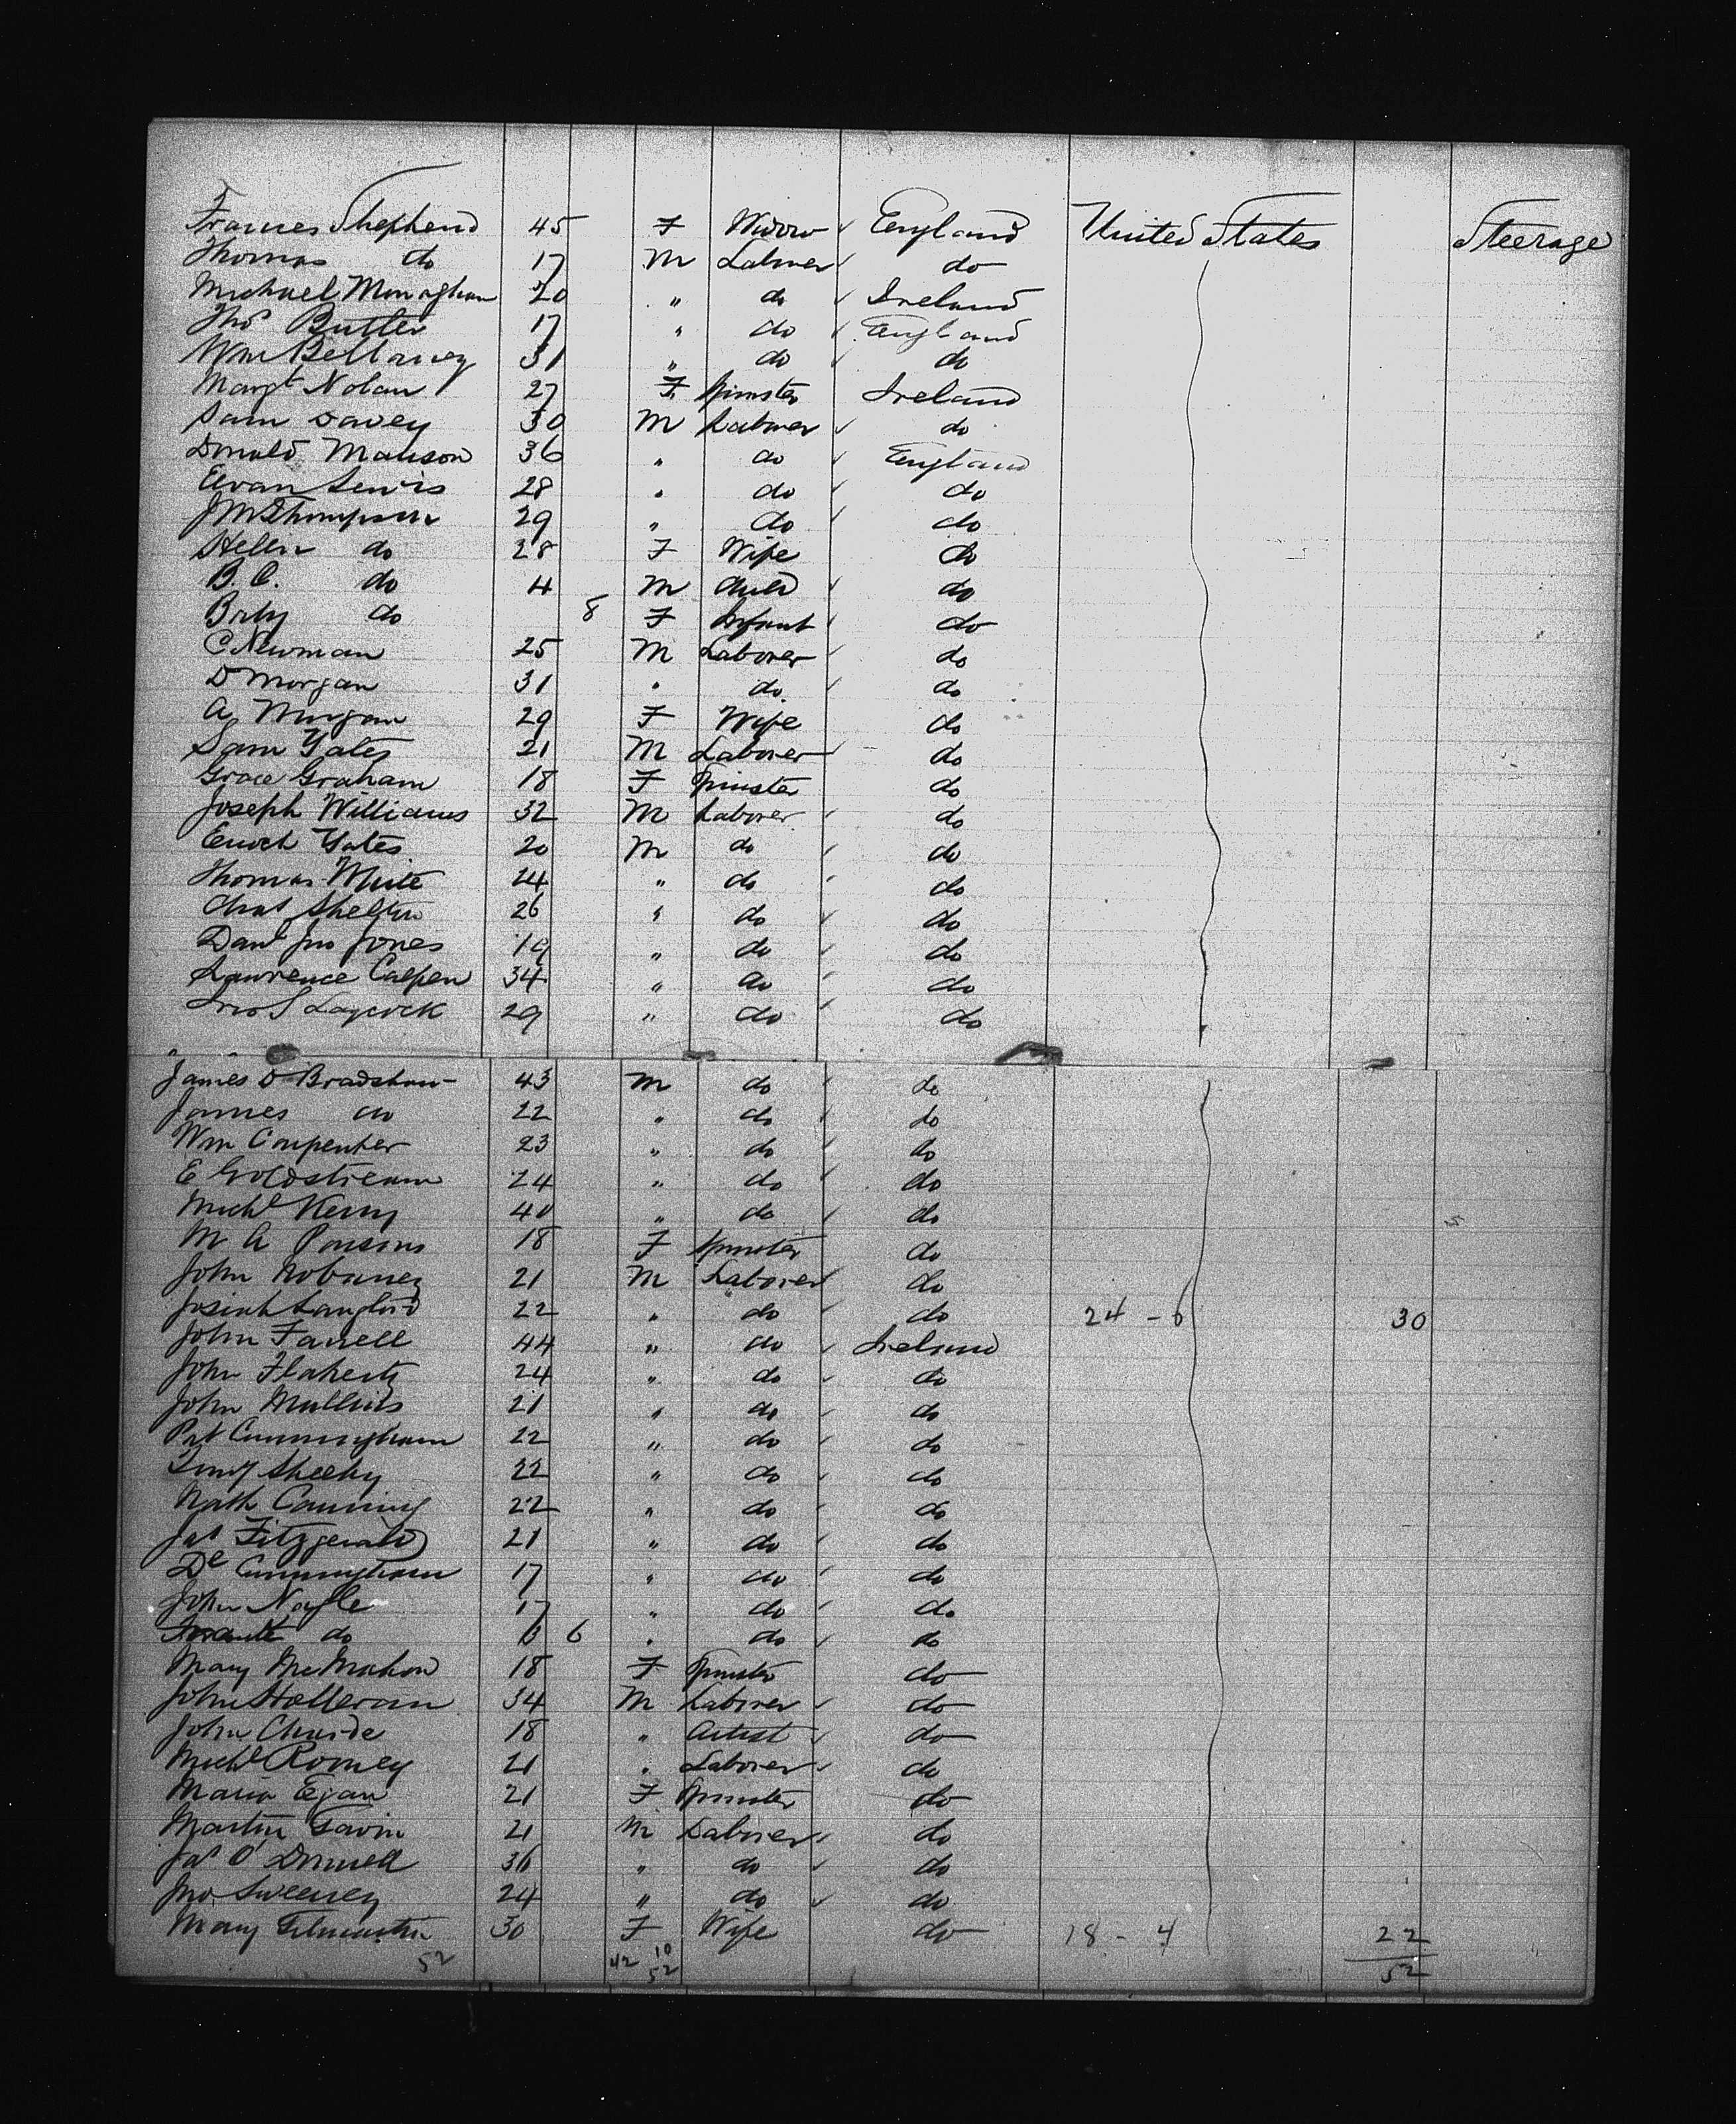 Frances Shepherd 45 F Widow England United States Steerage
Thomas do 17 M Laborer do
Michael Monaghan 20 " do Ireland
Thos Butler 17 " do England
Wm Bellamey 31 " do do
Margt Nolan 27 F Spinster Ireland
Sam Davey 30 M Laborer do
Donald Manson 36 " do England
Evan Lewis 28 " do do
J M Thompson 29 " do do
Hellen do 28 F Wife do
B. C. do 4 M Child do
Baby do 8 F Infant do
C Newman 25 M Laborer do
D Morgan 31 " do do
A Morgan 29 F Wife do
Sam Yates 21 M Laborer do
Grace Graham 18 F Spinster do
Joseph Williams 32 M Laborer do
Enoch Yates 20 M do do
Thomas White 24 " do do
Chas Shelton 26 " do do
Danl Jno Jones 19 " do do
Lawrence 34 " do do
Jno S Laycock 29 " do do
James D Bradshaw 43 M do do
James do 22 " do do
Wm Carpenter 23 " do do
E Goldstream 24 " do do
Michl Kerry 40 " do do
M A Parsons 18 F Spinster do
John 21 M Laborer do
Josiah Langford 22 " do do 24 - 6 30
John Farrell 44 " do Ireland
John Flaherty 24 " do do
John Mullins 21 " do do
Pat Cunningham 22 " do do
Timy Sheehy 22 " do do
Math Canning 22 " do do
Jas Fitzgerald 21 " do do
Dl Cunningham 17 " do do
John Nagle 17 " do do
do 6 " do do
Mary McMahon 18 F Spinster do
John Halleran 34 M Laborer do
John 18 " Artist do
Michl Romey 21 " Laborer do
Maria Egan 21 F Spinster do
Martin Gavin 21 M Laborer do
Jas O'Donnell 36 " do do
Jno Sweeney 24 " do do
Mary Gilmartin 30 F Wife do 18 - 4 22
52 42 10 52 52